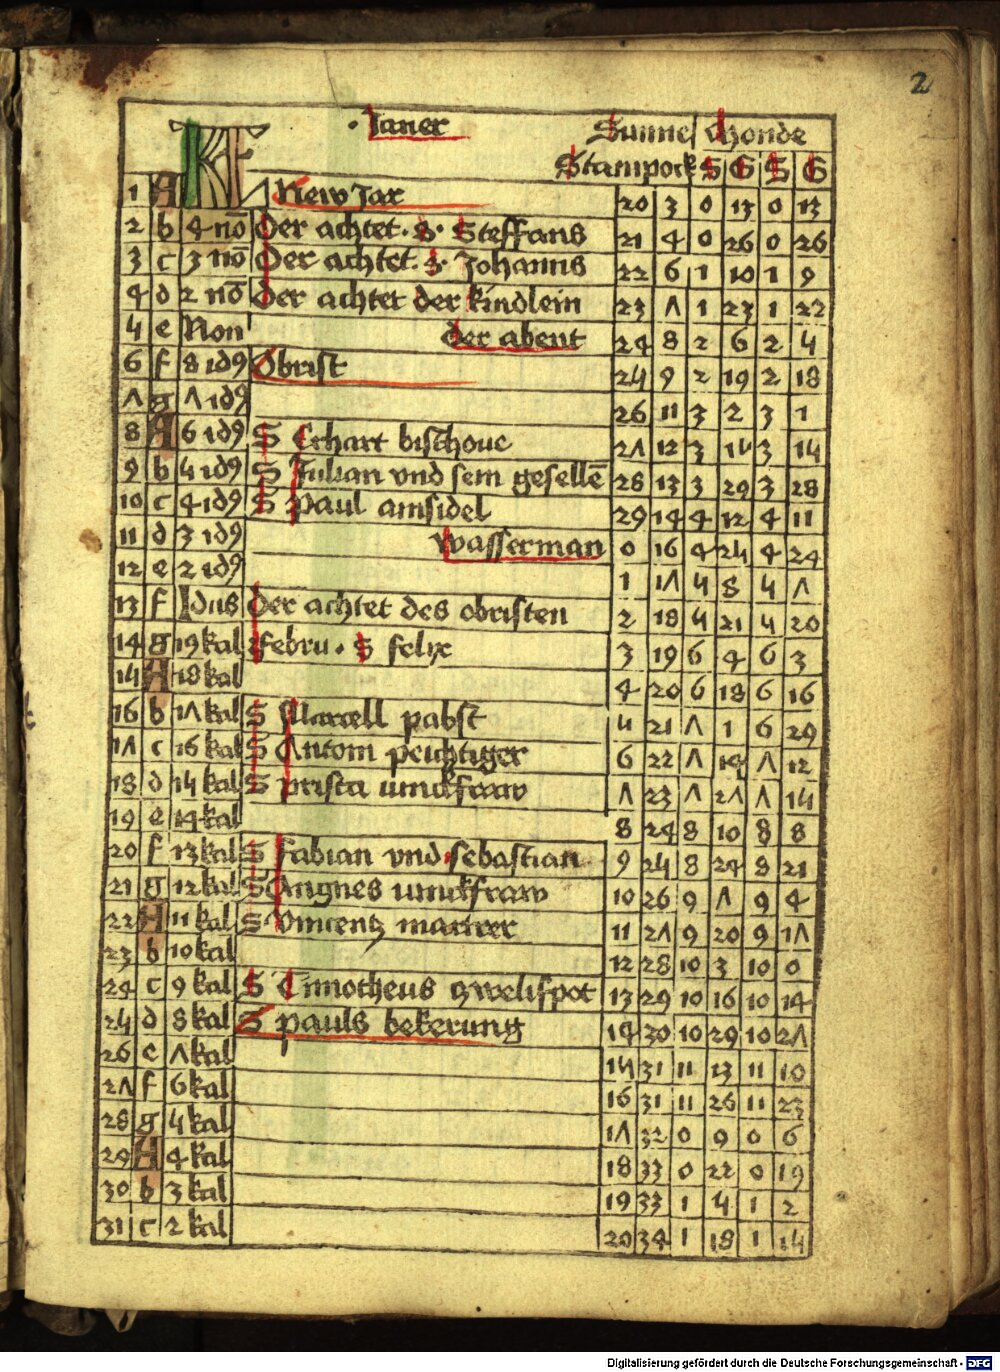 2
Janer Sunne Monde
Stainpock S G S G
1 A KL New Jar 20 3 0 13 0 13
2 b 4 nō Der achtet · S · Steffans 21 4 0 26 0 26
3 c 3 nō Der achtet · S · Johanns 22 6 1 10 1 9
4 d 2 nō Der achtet der kindlein 23 7 1 23 1 22
5 e Non der abent 24 8 2 6 2 5
6 f 8 idꝰ Obrist 25 9 2 19 2 18
7 g 7 idꝰ 26 11 3 2 3 1
8 A 6 idꝰ S Erhart bischoue 27 12 3 15 3 15
9 b 5 idꝰ S Julian vnd sein gesellē 28 13 3 29 3 28
10 c 4 idꝰ S Paul ainsidel 29 14 4 12 4 11
11 d 3 idꝰ wasserman 0 16 4 25 4 24
12 e 2 idꝰ 1 17 5 8 5 7
13 f Idus Der achtet des obristen 2 18 5 21 5 20
14 g 19 kal Febru · S felix 3 19 6 4 6 3
15 A 18 kal 4 20 6 18 6 16
16 b 17 kal S Marcell pabst 5 21 7 1 6 29
17 c 16 kal S Antoni peichtiger 6 22 7 14 7 12
18 d 15 kal S prisca iunckfraw 7 23 7 27 7 15
19 e 14 kal 8 24 8 10 8 8
20 f 13 kal S Fabian vnd sebastian 9 25 8 24 8 21
21 g 12 kal S Angnes iunckfraw 10 26 9 7 9 4
22 A 11 kal S Vincentz martrer 11 27 9 20 9 17
23 b 10 kal 12 28 10 3 10 0
24 c 9 kal S Timotheus zwelifpot 13 29 10 16 10 14
25 d 8 kal S pauls bekerung 14 30 10 29 10 27
26 e 7 kal 15 31 11 13 11 10
27 f 6 kal 16 31 11 26 11 23
28 g 5 kal 17 32 0 9 0 6
29 A 4 kal 18 33 0 22 0 19
30 b 3 kal 19 33 1 5 1 2
31 c 2 kal 20 34 1 18 1 15
Digitalisierung gefördert durch die Deutsche Forschungsgemeinschaft - DFG